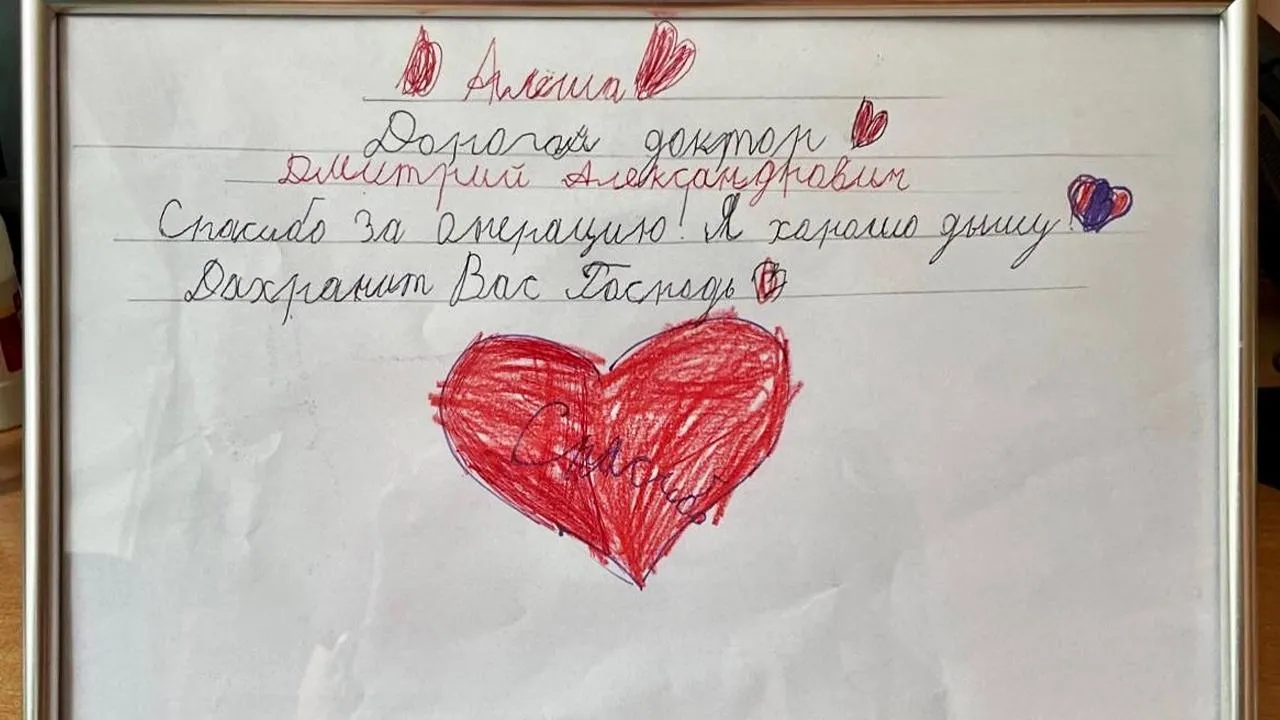 Алёша
Дорогой доктор
Дмитрий Александрович
Спасибо за операцию! Я хорошо дышу!
Дахранит Вас Господь
Спасибо